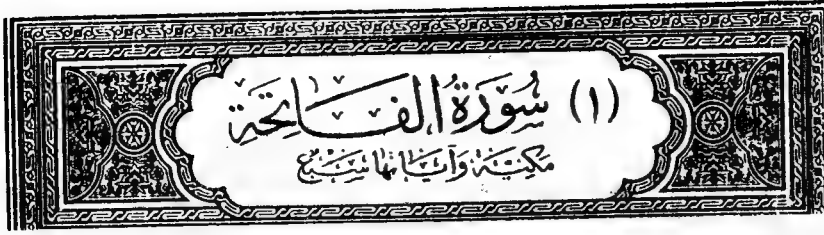 (١) سُورَةُ الفَاتِحَةِ
مَكِّيَّة وَآيَاتهَا سَبْعٌ